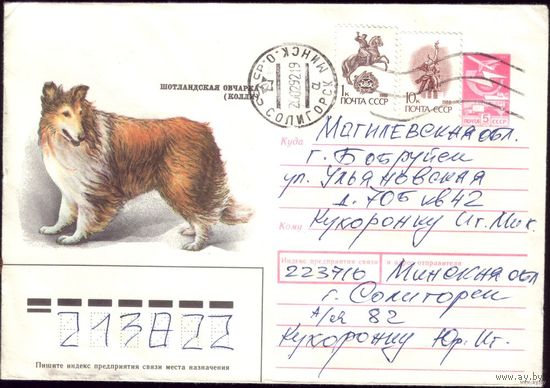 ШОТЛАНДСКАЯ ОВЧАРКА
(КОЛЛИ)
СССР МИНСК. О.
СОЛИГОРСК
1К ПОЧТА СССР
10К ПОЧТА СССР
5К СССР
Куда Магилевская обл.
г. Бобруйск
ул. Ульяновская
д. 70Б кв 42
Кому Кукоронку Иг. Мик.
Индекс предприятия связи и адрес отправителя
223716 Минская обл
г. Солигорск
А/я 82
Кукоронку Юр. Иг.
213822
Пишите индекс предприятия связи места назначения
www.ay.by